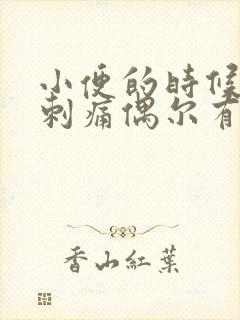 小便的時候
刺痛偶尔有
香山紅葉